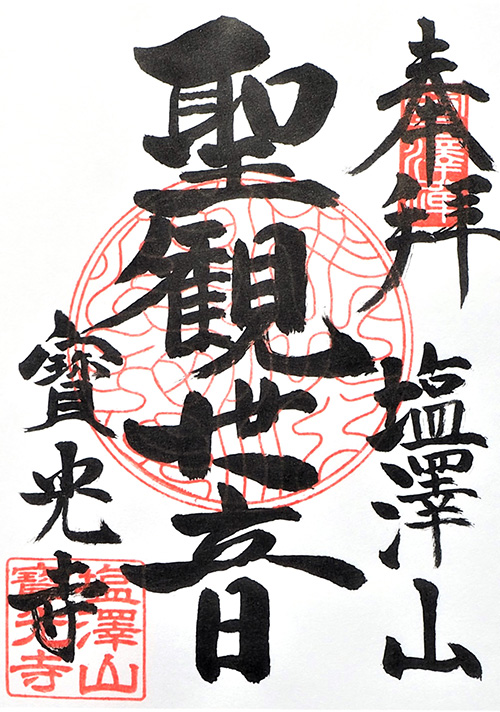 奉拝
塩澤山
聖観世音
寶光寺
塩澤山
寶光寺